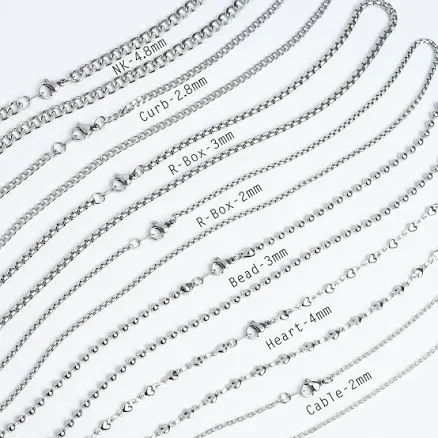 NK-4.8mm
Curb-2.8mm
R-Box-3mm
R-Box-2mm
Bead-3mm
Heart-4mm
Cable-2mm